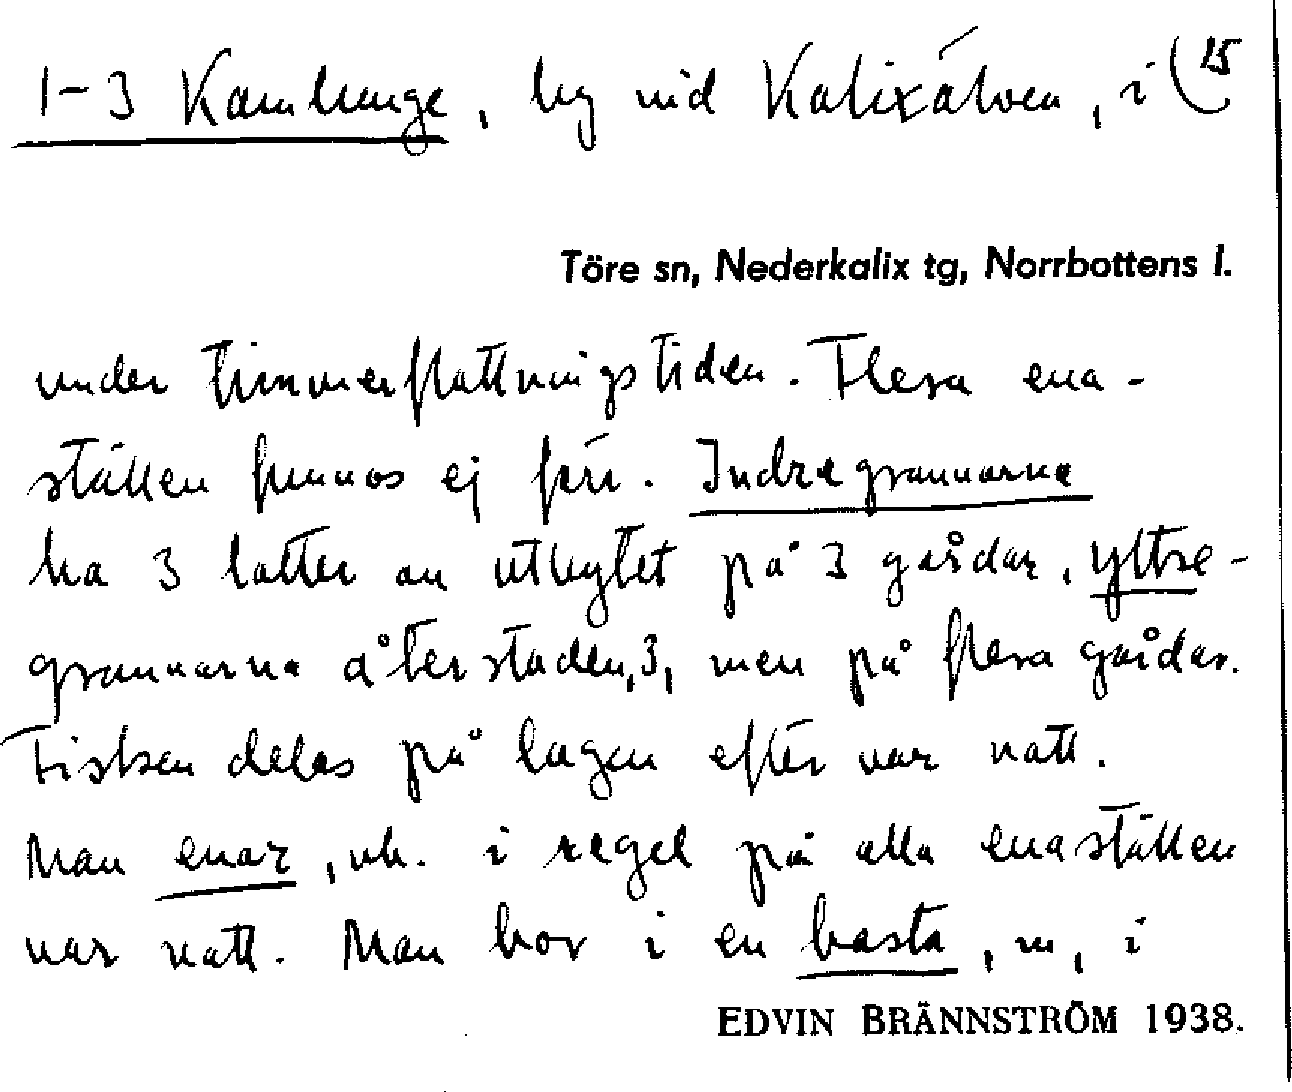 1-3 Kamlunge, by vid Kalixälven, i (15
Töre sn, Nederkalix tg, Norrbottens l.
under timmerflottningstiden. Flera ena-
ställen funnos ej förr. Indregrannarna
ha 3 lotter av utbytet på 3 gårdar, yttre-
grannarna återstoden, 3, men på flera gårdar.
Fisken delas på lagen efter var natt.
Man enar, vb. i regel på alla enaställen
var natt. Man bor i en basta, m, i
EDVIN BRÄNNSTRÖM 1938.